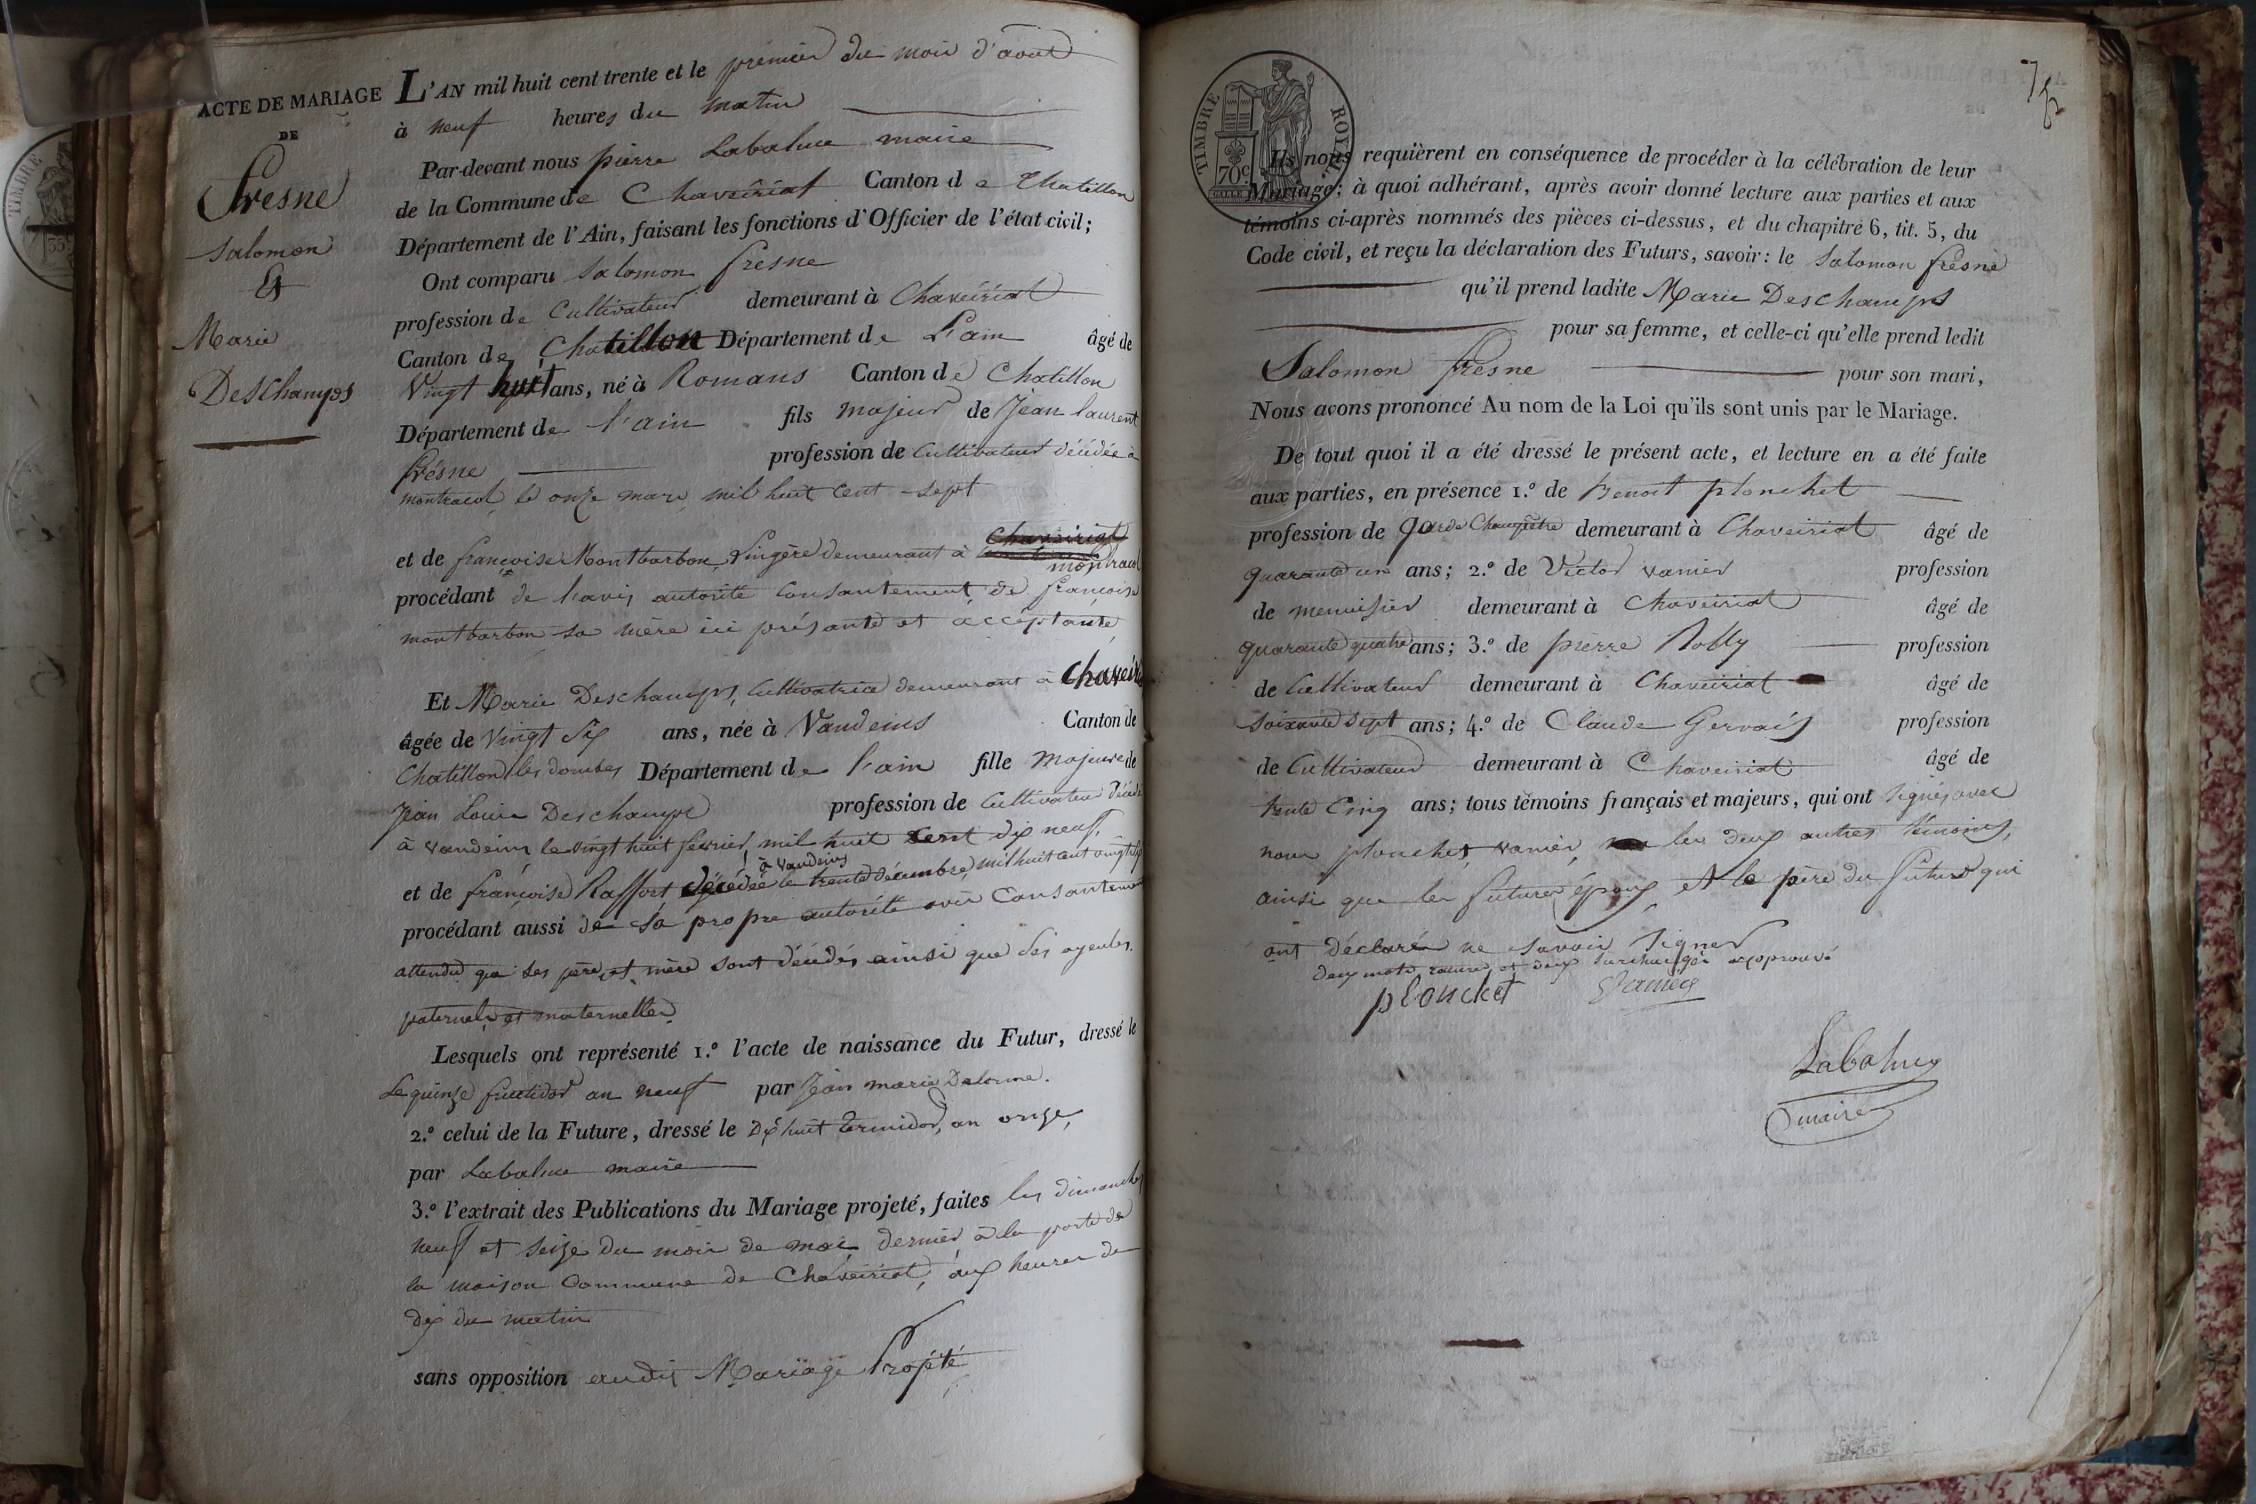 ACTE DE MARIAGE
DE
Fresne
Salomon
Et
Marie
Deschamps
L'AN mil huit cent trente et le premier du mois d'aout
à neuf heures du matin
Par-devant nous pierre Labalme maire
de la Commune de Chaveiriat Canton de Chatillon
Département de l'Ain, faisant les fonctions d'Officier de l'état civil;
Ont comparu Salomon fresne
profession de Cultivateur demeurant à Chaveiriat
Canton de Chatillon Département de L'ain âgé de
Vingt huit ans, né à Romans Canton de Chatillon
Département de l'ain fils majeur de Jean laurent
frésne profession de Cultivateur décédée à
montracol le onze mars mil huit cent sept
et de françoise Montbarbon, Lingère demeurant à Chaveiriat
montracol
procédant de l'avis autorité Consantement de françoise
montbarbon sa mère ici présante et accéptante
Et Marie Deschamps, Cultivatrice demeurant à Chaveir
âgée de Vingt Six ans, née à Vandeins Canton de
Chatillon les dombes Département de l'ain fille majeure de
Jean Louis Deschamps profession de Cultivateur décédé
à vandeins le vingt huit février mil huit cent dix neuf,
à vandeins
et de françoise Raffort décédée le trente décembre mil huit cent vingt
procédant aussi de sa propre autorité avis Consantement
attendu que ses père et mère sont décédés ainsi que ses ayeules
paternels et maternelles
Lesquels ont représenté 1.º l'acte de naissance du Futur, dressé le
Le quinze fructidor an neuf par Jean marie Delorme.
2.º celui de la Future, dressé le Dix huit termidor, an onze,
par Labalme maire
3.º l'extrait des Publications du Mariage projeté, faites les dimanches
neuf et seize du mois de mai dernier à la porte de
la maison Commune de Chaveiriat, aux heures de
dix du matin
sans opposition audit Mariage Projété
TIMBRE ROYAL
70c
Ils nous requièrent en conséquence de procéder à la célébration de leur
Mariage; à quoi adhérant, après avoir donné lecture aux parties et aux
témoins ci-après nommés des pièces ci-dessus, et du chapitre 6, tit. 5, du
Code civil, et reçu la déclaration des Futurs, savoir: le Salomon fresne
qu'il prend ladite Marie Deschamps
pour sa femme, et celle-ci qu'elle prend ledit
Salomon fresne pour son mari,
Nous avons prononcé Au nom de la Loi qu'ils sont unis par le Mariage.
De tout quoi il a été dressé le présent acte, et lecture en a été faite
aux parties, en présence 1.º de Benoit plonchet
profession de garde Champêtre demeurant à Chaveiriat âgé de
quarante un ans; 2.º de Victor vanier profession
de menuisier demeurant à Chaveiriat âgé de
quarante quatre ans; 3.º de pierre Robly profession
de Cultivateur demeurant à Chaveiriat âgé de
soixante sept ans; 4.º de Claude Gervais profession
de Cultivateur demeurant à Chaveiriat âgé de
trente Cinq ans; tous témoins français et majeurs, qui ont signés avec
nous plonchet, vanier, les deux autres témoins,
ainsi que les futures époux et le père du futur qui
ont déclaré ne savoir signer
deux mots raturés et deux surchargés approuvé
plonchet Vanier
Labalme
maire